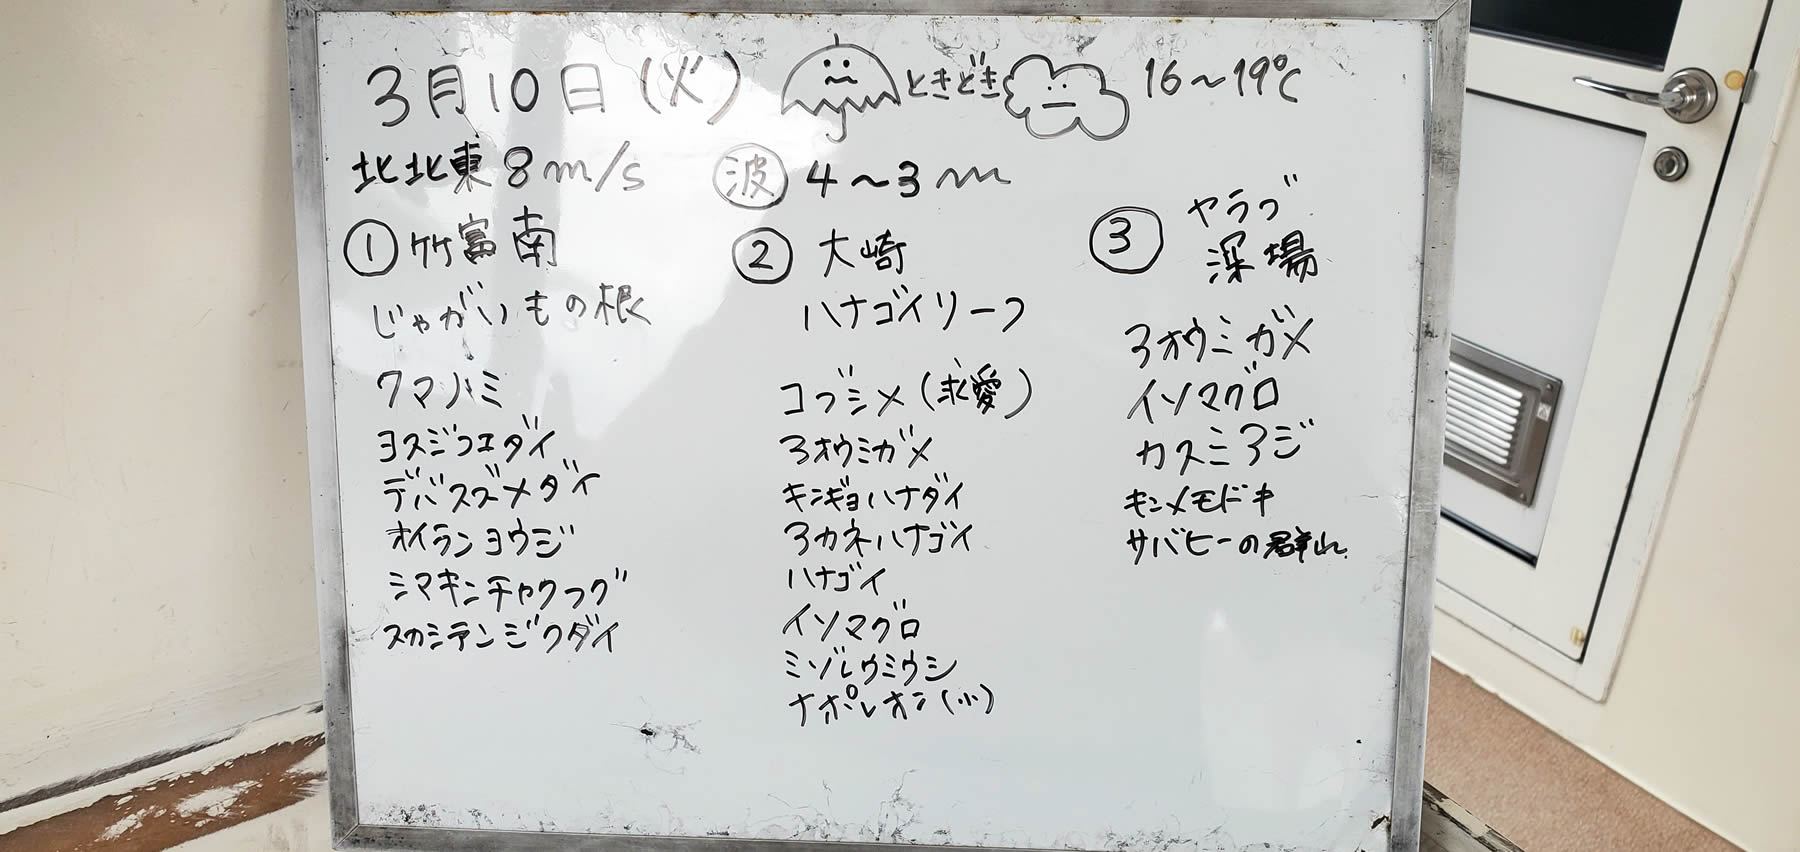 3月10日(火) ときどき 16~19℃
北北東8m/s 波 4~3m
① 竹富南
じゃがいもの根
クマノミ
ヨスジフエダイ
デバスズメダイ
オイランヨウジ
シマキンチャクフグ
スカシテンジクダイ
② 大崎
ハナゴイリーフ
コブシメ(求愛)
アオウミガメ
キンギョハナダイ
アカネハナゴイ
ハナゴイ
イソマグロ
ミゾレウミウシ
ナポレオン(小)
③ ヤラブ
深場
アオウミガメ
イソマグロ
カスミアジ
キンメモドキ
サバヒーの群れ